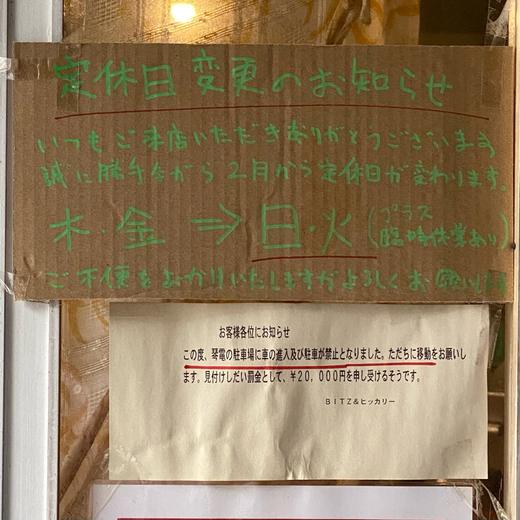 定休日変更のお知らせ
いつもご来店いただきありがとうございます
誠に勝手ながら2月から定休日が変わります。
木・金 ⇒ 日・火 (プラス 臨時休業あり)
ご不便をおかけいたしますがよろしくお願いします
お客様各位にお知らせ
この度、琴電の駐車場に車の進入及び駐車が禁止となりました。ただちに移動をお願いし
ます。見付けしだい罰金として、¥20,000円を申し受けるそうです。
BITZ&ヒッカリー